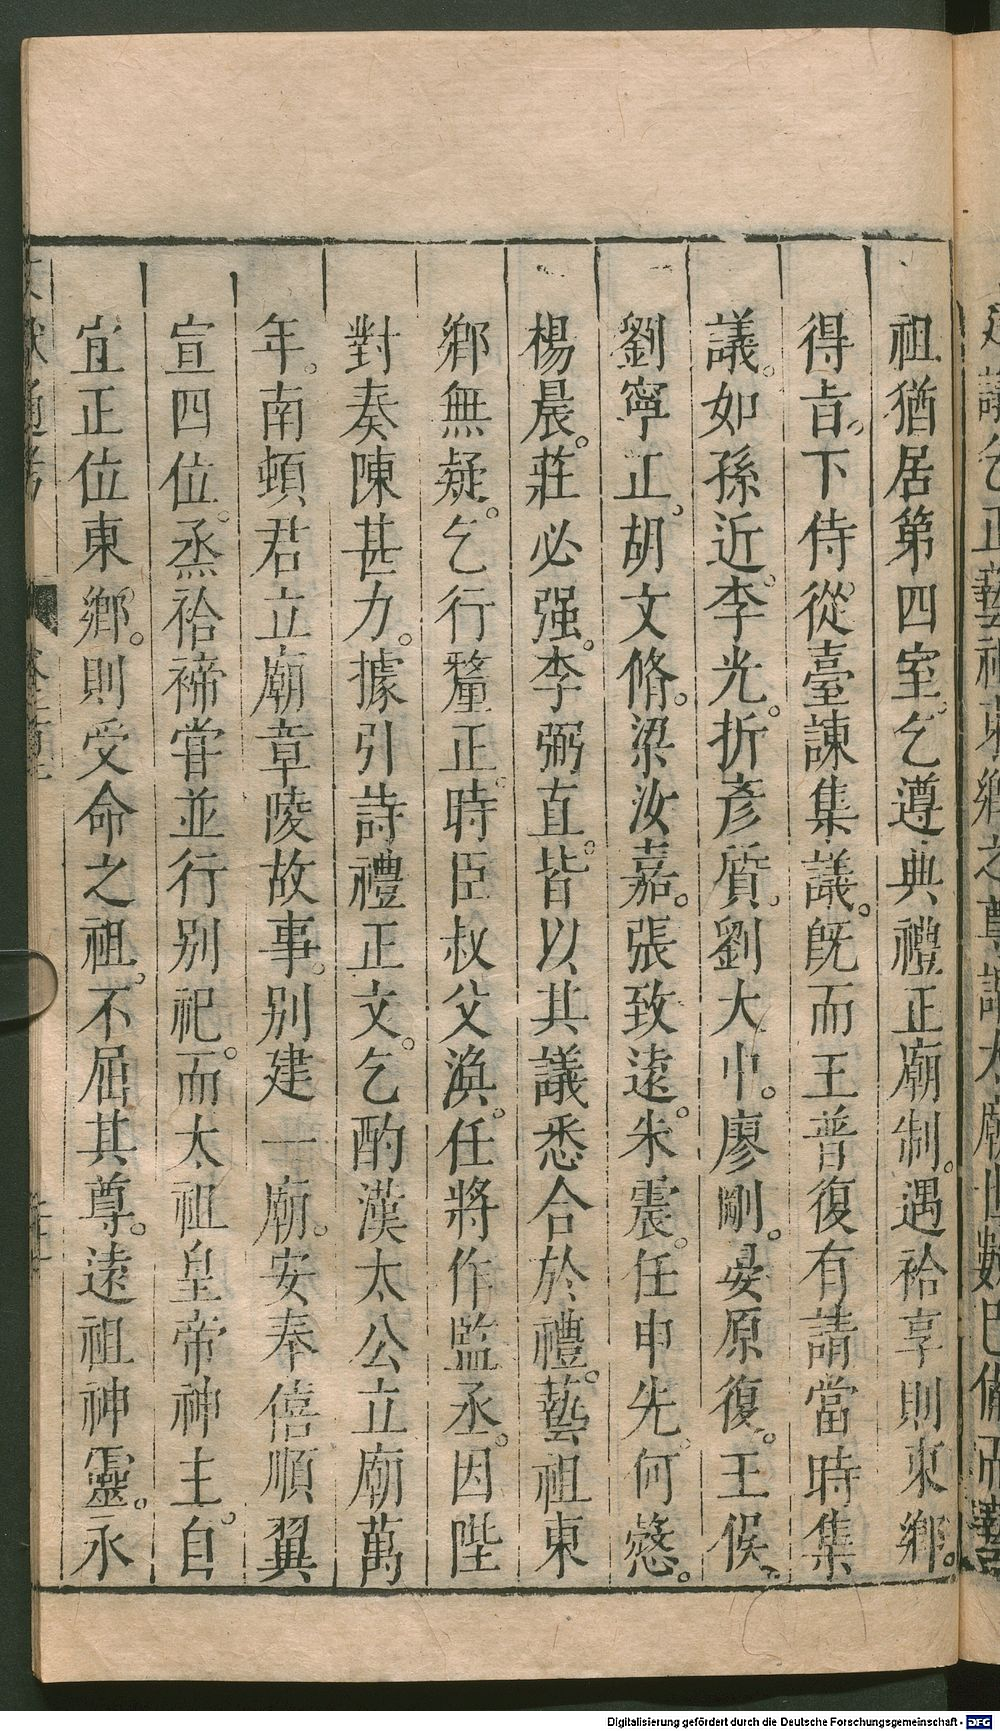 祖猶居第四室乞遵典禮正廟制。遇祫享則東鄉。
得旨。下侍從臺諫集議。旣而王普復有請當時集
議。如孫近。李光。折彥質。劉大中。廖剛。晏原復。王俁。
劉寧止。胡文脩。梁汝嘉。張致遠。朱震。任申先。何慤。
楊晨。莊必强。李弼直。皆以其議悉合於禮。藝祖東
鄉無疑。乞行釐正。時臣叔父渙。任將作監丞。因陛
對奏陳甚力。據引詩禮正文。乞酌漢太公立廟萬
年。南頓君立廟章陵故事。别建一廟。安奉僖順翼
宣四位。烝祫禘甞並行别祀。而太祖皇帝神主。自
宜正位東鄉。則受命之祖。不屈其尊。遠祖神靈。永
Digitalisierung gefördert durch die Deutsche Forschungsgemeinschaft - DFG